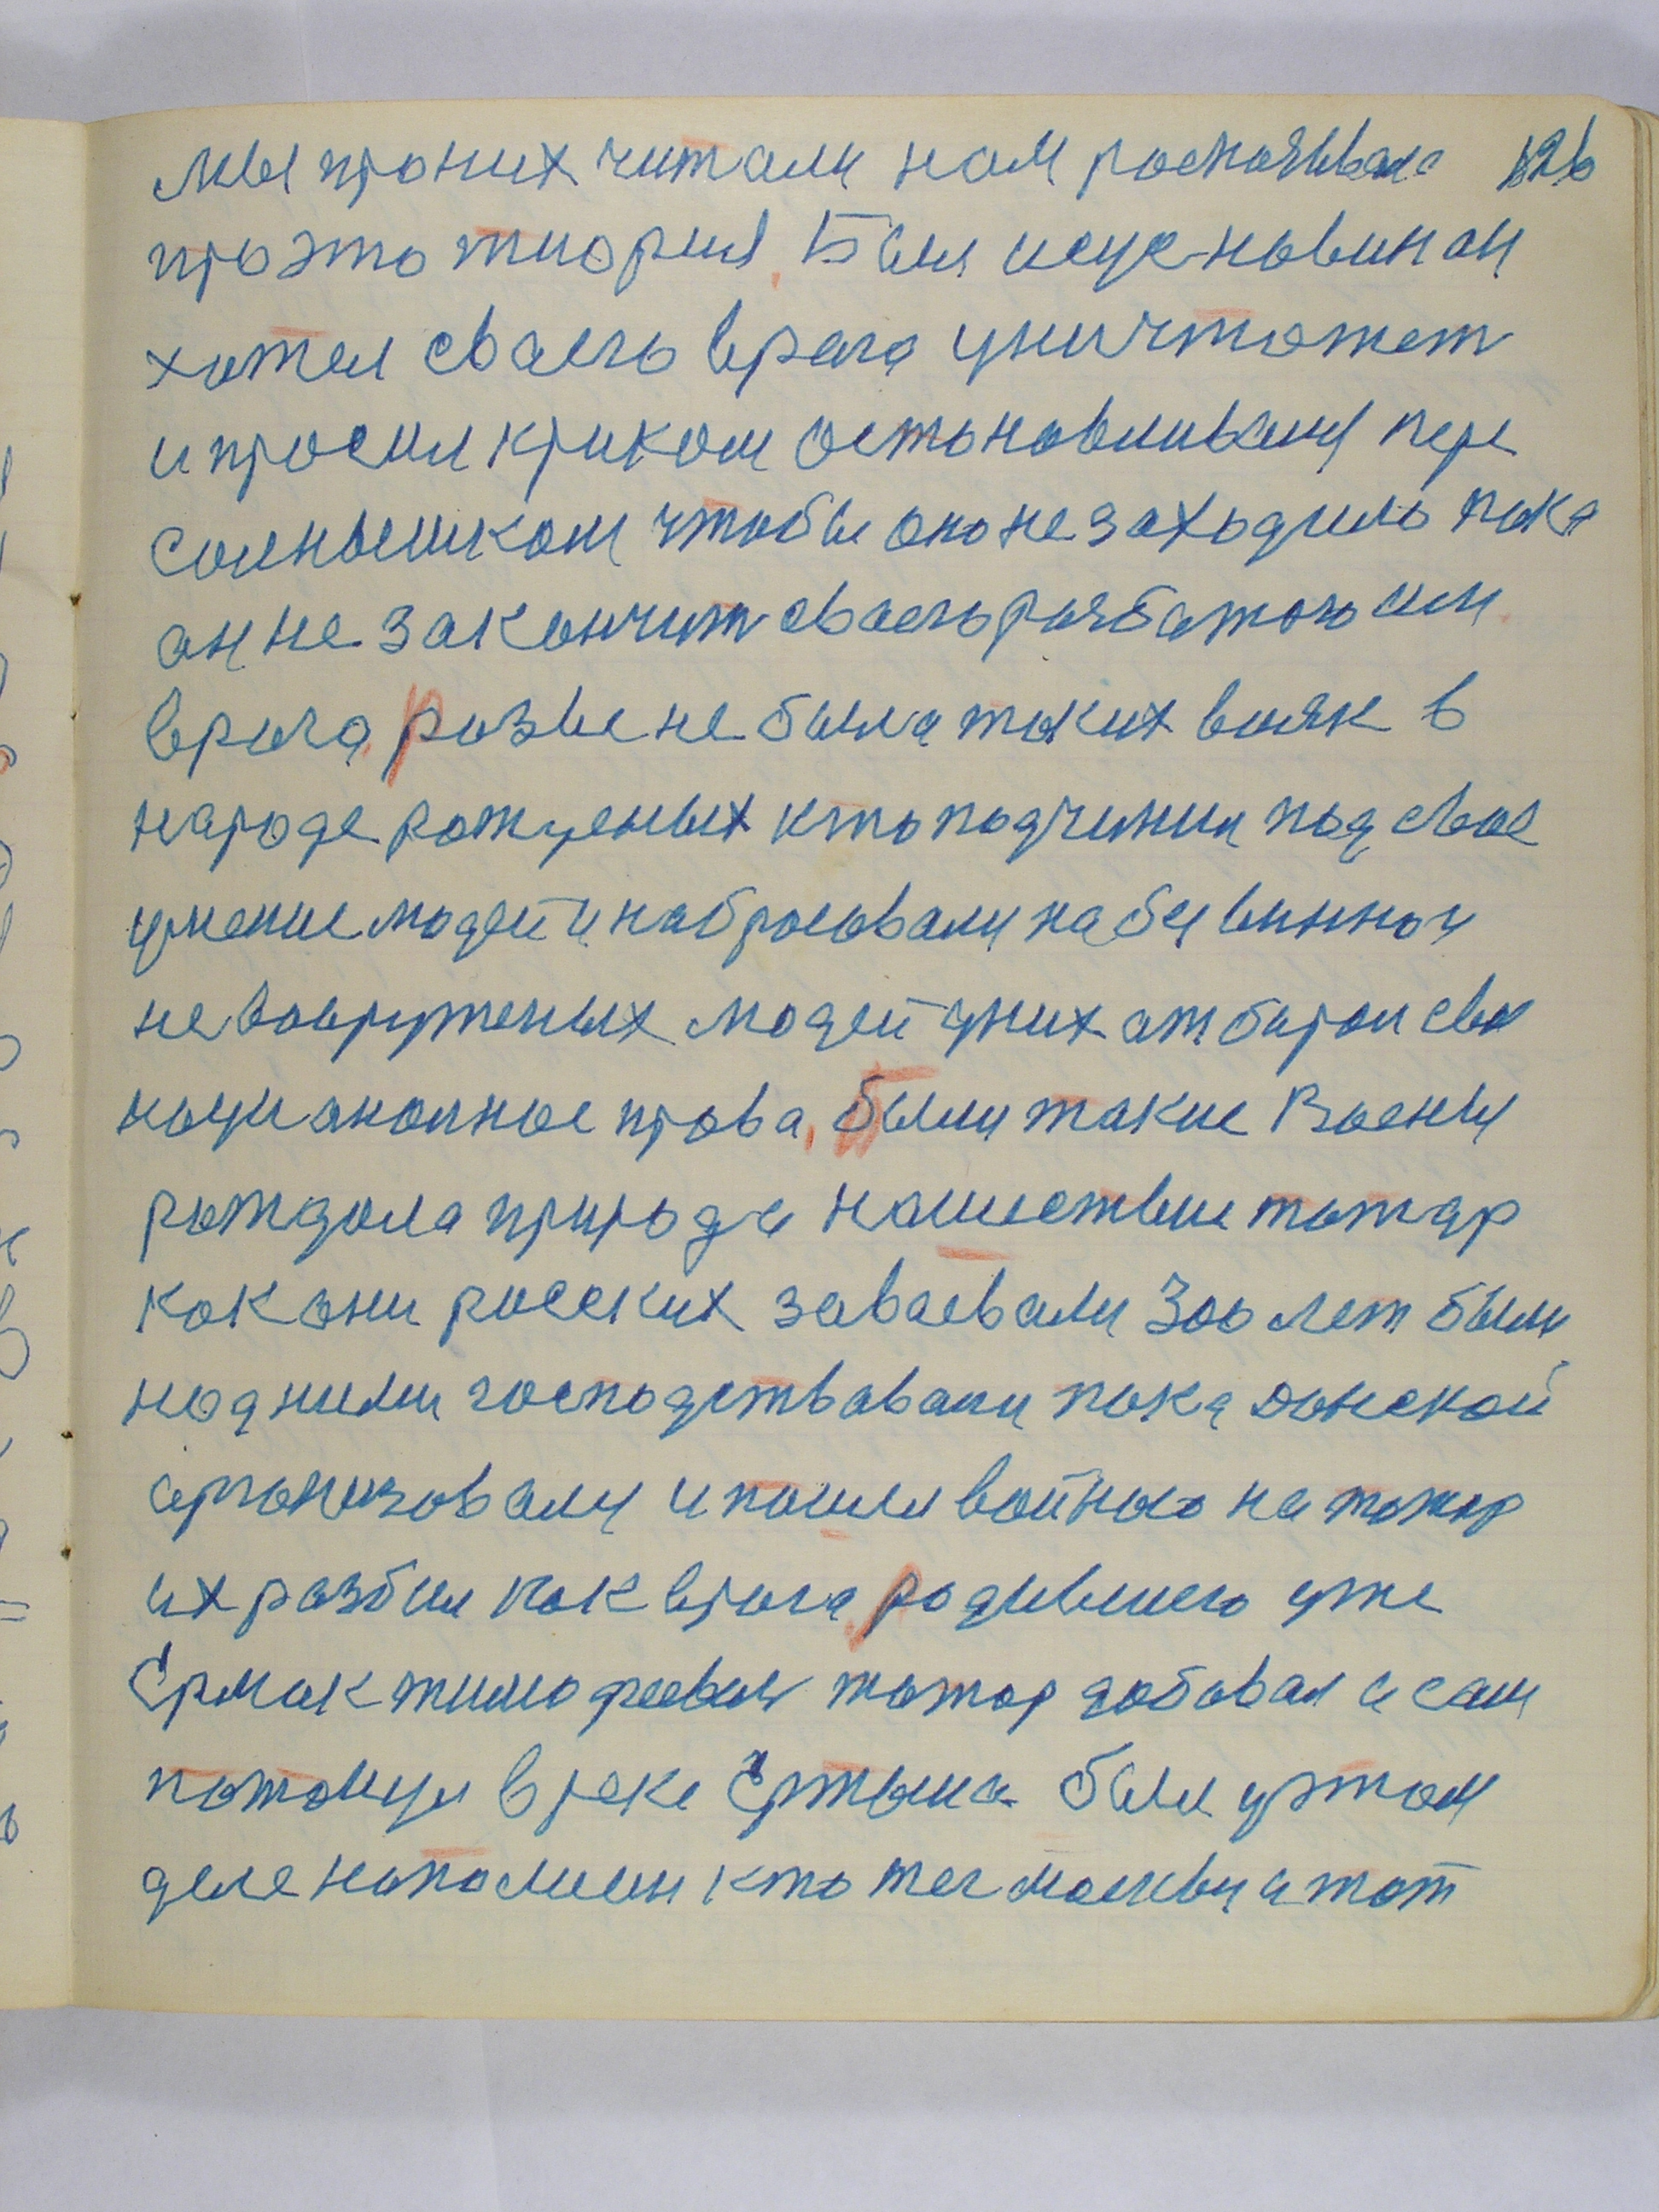 мы проних читали нам 126
проэто тиория. Был исус новин он
хотел сваего врага уничтожет
и просил криком остоновливания пере
солнышком чтобы ононезаходило пока
он не закончит сваего
врага. разве не была таких вояк в
народе рожденых кто подчинил под свое
умение людей и набросовали на бевинной
невооруженых людей уних отбирои свое
нацианолное права. были такие военыи
рождала природа нашествие тотар
как они росских заваевали 300 лет были
наднили господствавали пока донской
органезовали и пошел войною на тотар
их разбил как врага. родившего уже
Ермак тимофеевич тотор добовал а сам
потонул в реке Ертыша был уэтом
деле напалион кто жег москву а тот